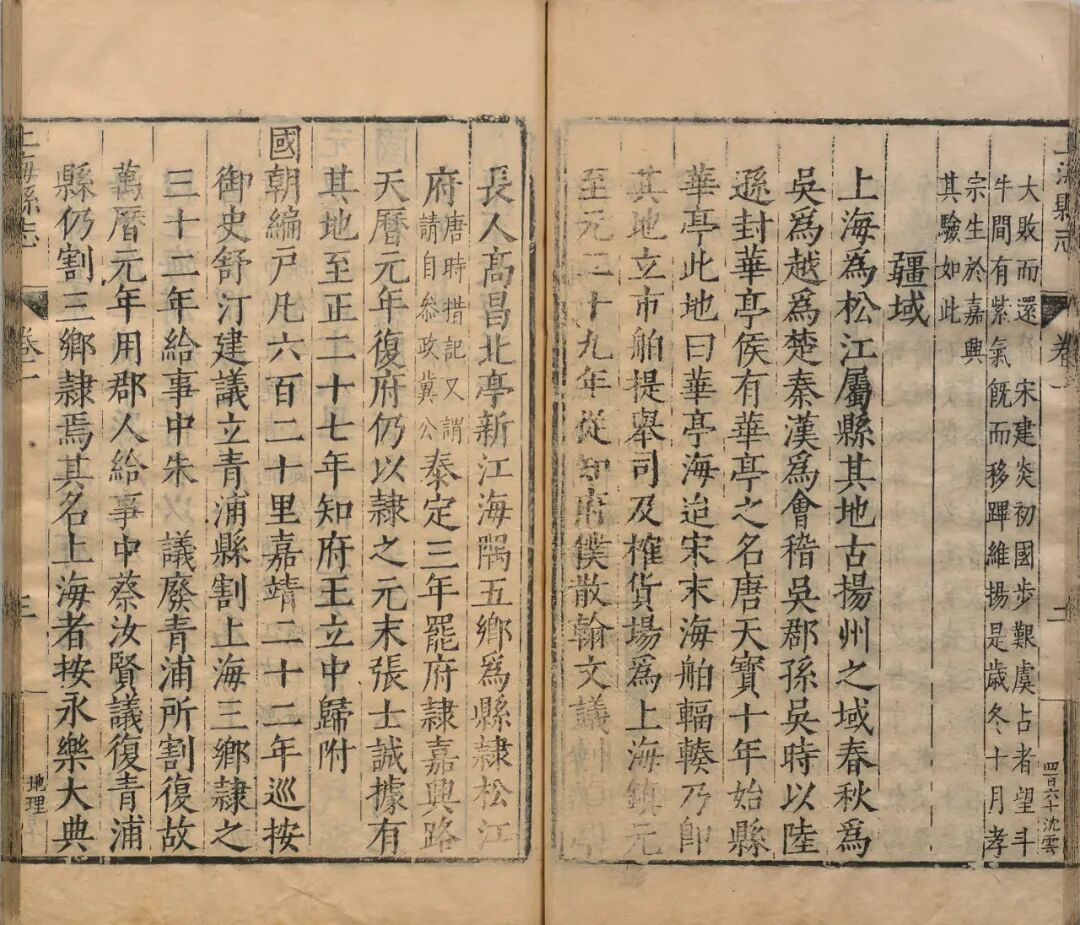 上海縣志
卷一
四百六十沈雲
大敗而還 宋建炎初國步艱虞占者望斗
牛間有紫氣既而移蹕維揚是歲冬十月孝
宗生於嘉興
其驗如此
疆域
上海為松江屬縣其地古揚州之域春秋為
吳為越為楚秦漢為會稽吳郡孫吳時以陸
遜封華亭侯有華亭之名唐天寶十年始縣
華亭此地曰華亭海迨宋末海舶輻輳乃即
其地立市舶提舉司及榷貨場為上海鎮元
至元二十九年從知府僕散翰文議
長人高昌北亭新江海隅五鄉爲縣隷松江
府唐時措記又謂請自參政冀公泰定三年罷府隷嘉興路
天曆元年復府仍以隷之元末張士誠據有
其地至正二十七年知府王立中歸附
國朝編戸凡六百二十里嘉靖二十二年巡按
御史舒汀建議立青浦縣割上海三鄉隷之
三十二年給事中朱 議廢青浦所割復故
萬曆元年用郡人給事中蔡汝賢議復青浦
縣仍割三鄉隷焉其名上海者按永樂大典
上海縣志
卷一
三
地理